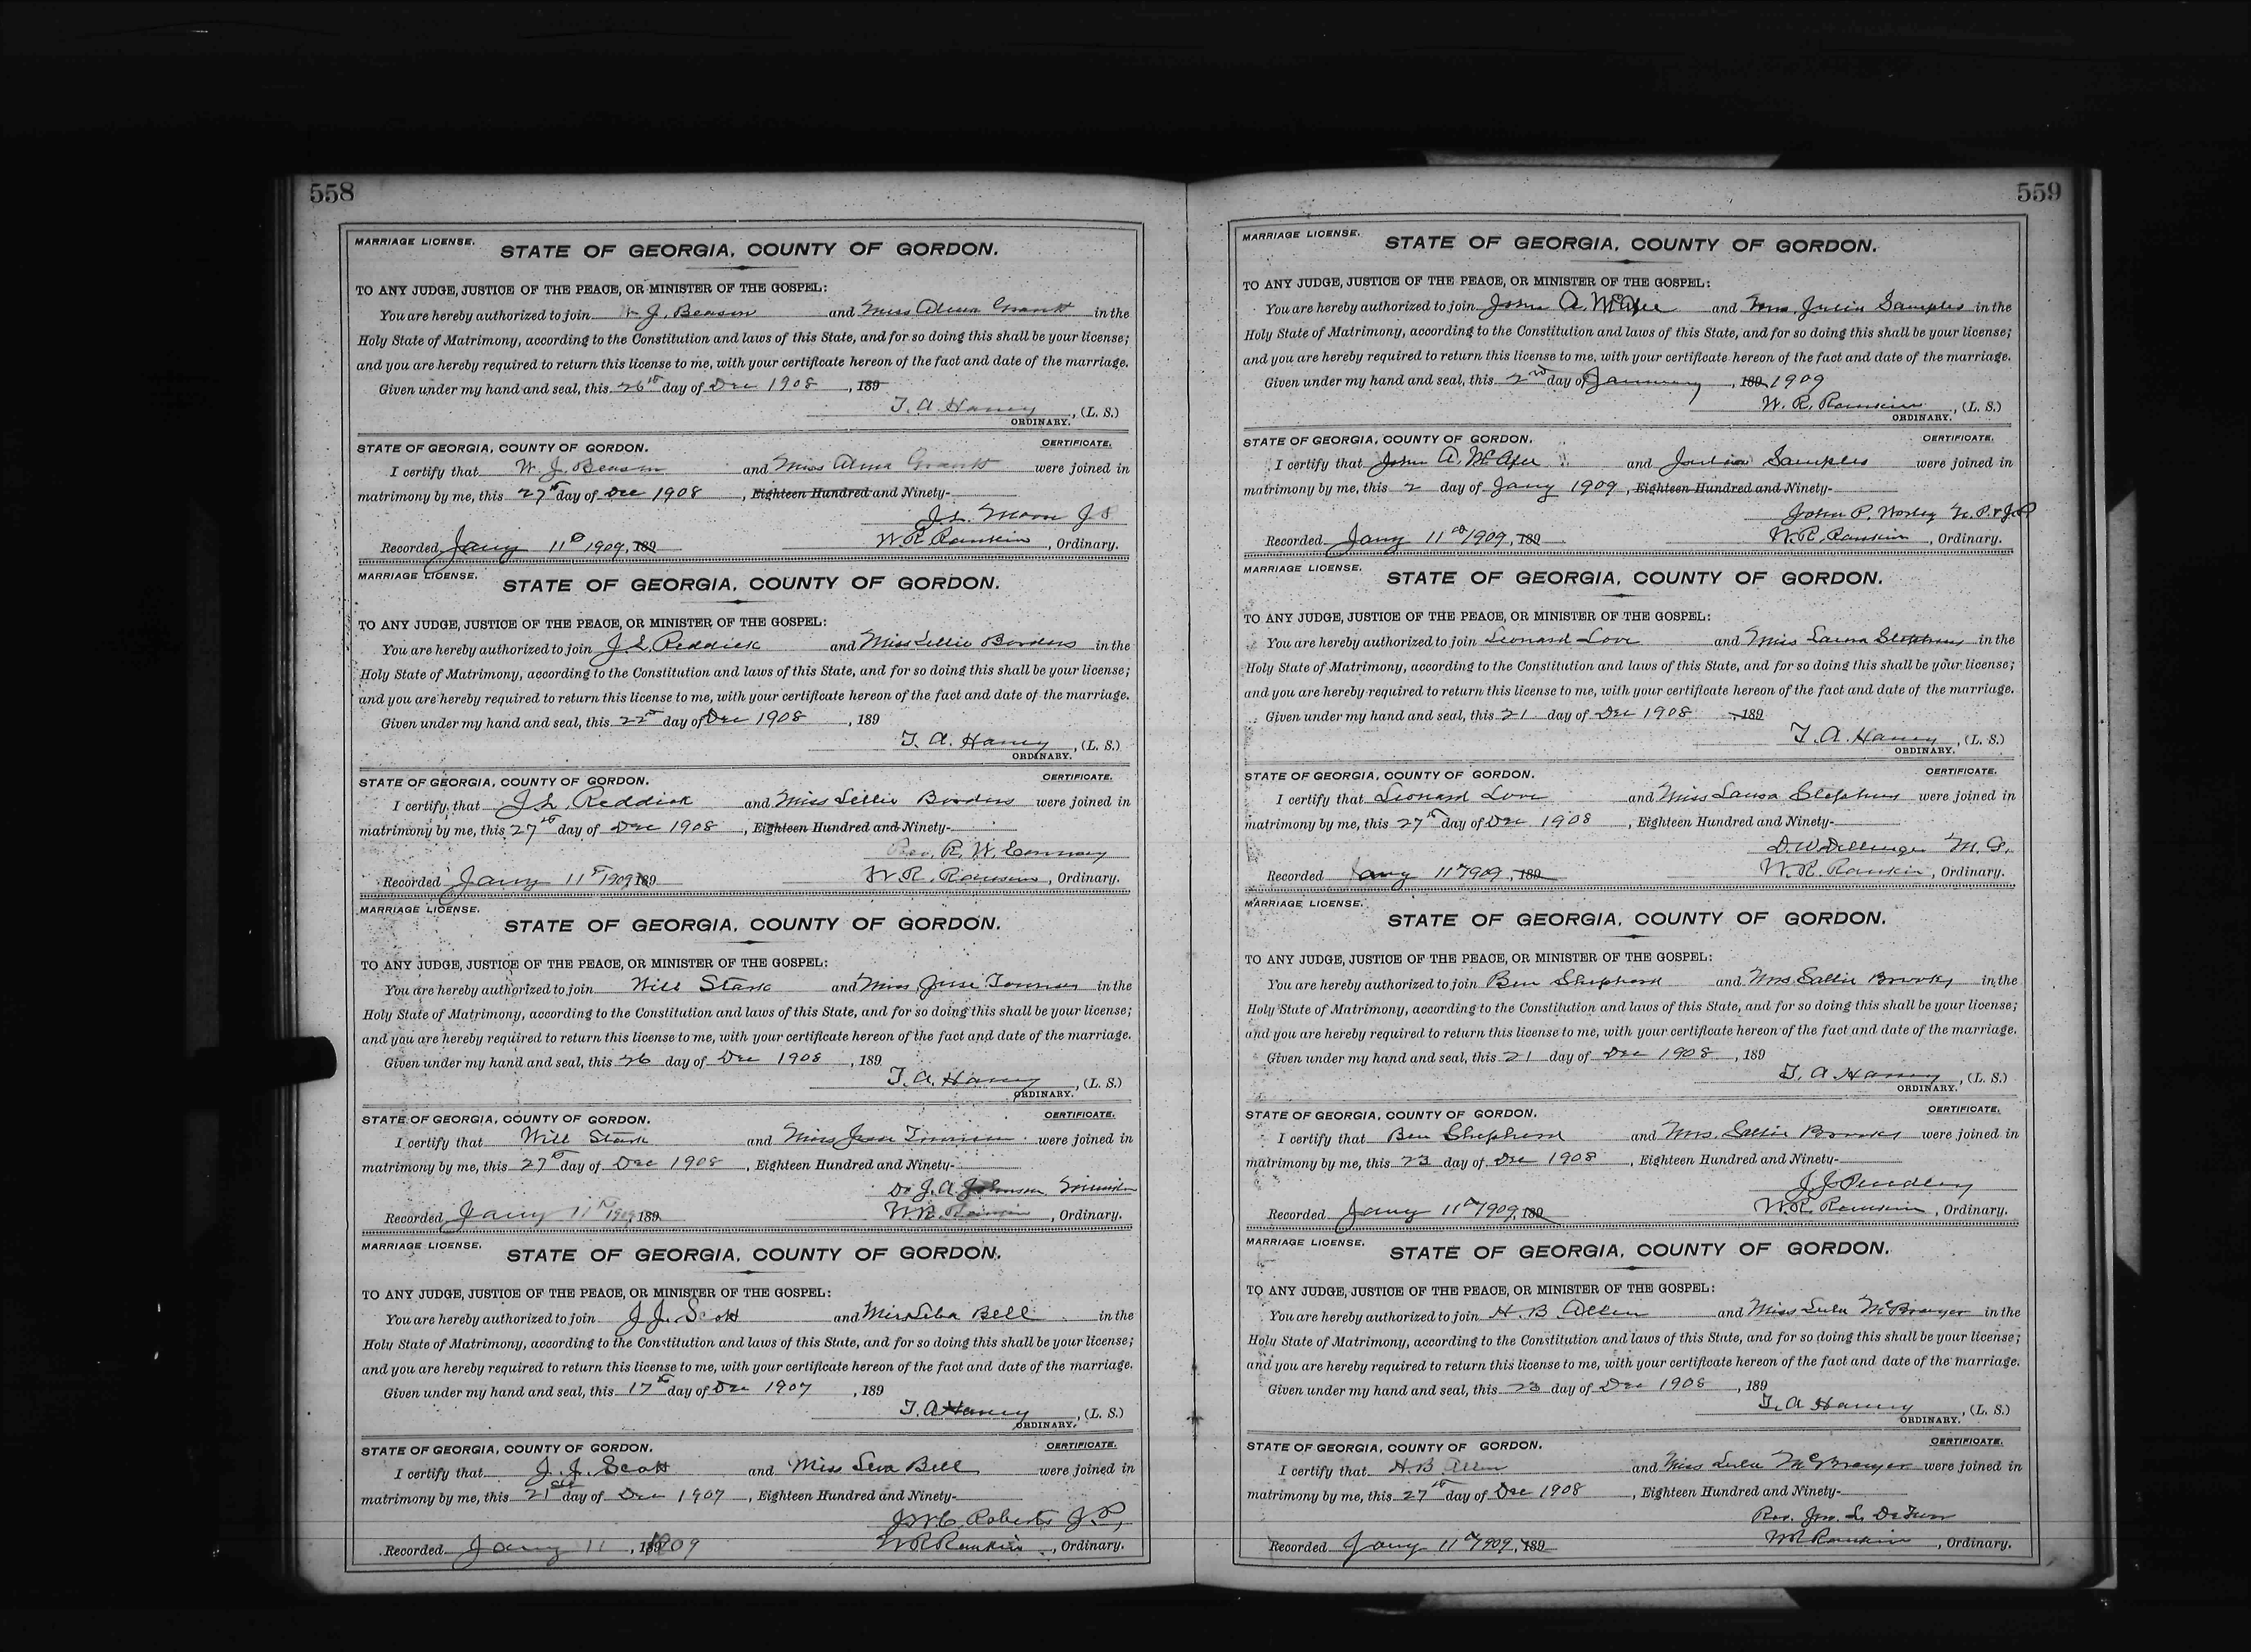 558
MARRIAGE LICENSE.
STATE OF GEORGIA, COUNTY OF GORDON.
TO ANY JUDGE, JUSTICE OF THE PEACE, OR MINISTER OF THE GOSPEL:
You are hereby authorized to join W. J. Beason and Miss Alma Grantt in the
Holy State of Matrimony, according to the Constitution and laws of this State, and for so doing this shall be your license;
and you are hereby required to return this license to me, with your certificate hereon of the fact and date of the marriage.
Given under my hand and seal, this 26th day of Dec 1908, 189
T. A. Haney, (L. S.)
ORDINARY.
STATE OF GEORGIA, COUNTY OF GORDON. CERTIFICATE.
I certify that W. J. Beason and Miss Alma Grantt were joined in
matrimony by me, this 27th day of Dec 1908, Eighteen Hundred and Ninety-
J. L. Moore
Recorded Jany 11th 1909, 189 W. R. Rankin, Ordinary.
MARRIAGE LICENSE.
STATE OF GEORGIA, COUNTY OF GORDON.
TO ANY JUDGE, JUSTICE OF THE PEACE, OR MINISTER OF THE GOSPEL:
You are hereby authorized to join J. L. Reddick and Miss Lillie Borders in the
Holy State of Matrimony, according to the Constitution and laws of this State, and for so doing this shall be your license;
and you are hereby required to return this license to me, with your certificate hereon of the fact and date of the marriage.
Given under my hand and seal, this 22nd day of Dec 1908, 189
T. A. Haney, (L. S.)
ORDINARY.
STATE OF GEORGIA, COUNTY OF GORDON. CERTIFICATE.
I certify that J. L. Reddick and Miss Lillie Borders were joined in
matrimony by me, this 27th day of Dec 1908, Eighteen Hundred and Ninety-
Rev. R. W.
Recorded Jany 11th 1909, 189 W. R. Rankin, Ordinary.
MARRIAGE LICENSE.
STATE OF GEORGIA, COUNTY OF GORDON.
TO ANY JUDGE, JUSTICE OF THE PEACE, OR MINISTER OF THE GOSPEL:
You are hereby authorized to join Will Stark and Miss in the
Holy State of Matrimony, according to the Constitution and laws of this State, and for so doing this shall be your license;
and you are hereby required to return this license to me, with your certificate hereon of the fact and date of the marriage.
Given under my hand and seal, this 26 day of Dec 1908, 189
T. A. Haney, (L. S.)
ORDINARY.
STATE OF GEORGIA, COUNTY OF GORDON. CERTIFICATE.
I certify that Will Stark and Miss were joined in
matrimony by me, this 27th day of Dec 1908, Eighteen Hundred and Ninety-
Dr J. A. Johnson
Recorded Jany 11th 1909, 189 W. R. Rankin, Ordinary.
MARRIAGE LICENSE.
STATE OF GEORGIA, COUNTY OF GORDON.
TO ANY JUDGE, JUSTICE OF THE PEACE, OR MINISTER OF THE GOSPEL:
You are hereby authorized to join J. J. Scott and Miss Bell in the
Holy State of Matrimony, according to the Constitution and laws of this State, and for so doing this shall be your license;
and you are hereby required to return this license to me, with your certificate hereon of the fact and date of the marriage.
Given under my hand and seal, this 17th day of Dec 1907, 189
T. A Haney, (L. S.)
ORDINARY.
STATE OF GEORGIA, COUNTY OF GORDON. CERTIFICATE.
I certify that J. J. Scott and Miss Bell were joined in
matrimony by me, this 21st day of Dec 1907, Eighteen Hundred and Ninety-
Roberts J. P.,
Recorded Jany 11, 1909 W R Rankin, Ordinary.
559
MARRIAGE LICENSE.
STATE OF GEORGIA, COUNTY OF GORDON.
TO ANY JUDGE, JUSTICE OF THE PEACE, OR MINISTER OF THE GOSPEL:
You are hereby authorized to join John A. McAfee and Mrs Julia Samples in the
Holy State of Matrimony, according to the Constitution and laws of this State, and for so doing this shall be your license;
and you are hereby required to return this license to me, with your certificate hereon of the fact and date of the marriage.
Given under my hand and seal, this 2nd day of January, 189 1909
W. R. Rankin, (L. S.)
ORDINARY.
STATE OF GEORGIA, COUNTY OF GORDON. CERTIFICATE.
I certify that John A. McAfee and Julia Samples were joined in
matrimony by me, this 2 day of Jany 1909, Eighteen Hundred and Ninety-
John P. Worley N. P. & J. P
Recorded Jany 11th 1909, 189 W. R. Rankin, Ordinary.
MARRIAGE LICENSE.
STATE OF GEORGIA, COUNTY OF GORDON.
TO ANY JUDGE, JUSTICE OF THE PEACE, OR MINISTER OF THE GOSPEL:
You are hereby authorized to join Leonard Love and Miss Laura Stephens in the
Holy State of Matrimony, according to the Constitution and laws of this State, and for so doing this shall be your license;
and you are hereby required to return this license to me, with your certificate hereon of the fact and date of the marriage.
Given under my hand and seal, this 21 day of Dec 1908, 189
T. A. Haney, (L. S.)
ORDINARY.
STATE OF GEORGIA, COUNTY OF GORDON. CERTIFICATE.
I certify that Leonard Love and Miss Laura Stephens were joined in
matrimony by me, this 27th day of Dec 1908, Eighteen Hundred and Ninety-
D. W Dellinger M. G.
Recorded Jany 11th 1909, 189 W. R. Rankin, Ordinary.
MARRIAGE LICENSE.
STATE OF GEORGIA, COUNTY OF GORDON.
TO ANY JUDGE, JUSTICE OF THE PEACE, OR MINISTER OF THE GOSPEL:
You are hereby authorized to join Ben Shepherd and Mrs Sallie Brooks in the
Holy State of Matrimony, according to the Constitution and laws of this State, and for so doing this shall be your license;
and you are hereby required to return this license to me, with your certificate hereon of the fact and date of the marriage.
Given under my hand and seal, this 21 day of Dec 1908, 189
T. A Haney, (L. S.)
ORDINARY.
STATE OF GEORGIA, COUNTY OF GORDON. CERTIFICATE.
I certify that Ben Shepherd and Mrs. Sallie Brooks were joined in
matrimony by me, this 23 day of Dec 1908, Eighteen Hundred and Ninety-
J. J. Pendley
Recorded Jany 11th 1909, 189 W. R. Rankin, Ordinary.
MARRIAGE LICENSE.
STATE OF GEORGIA, COUNTY OF GORDON.
TO ANY JUDGE, JUSTICE OF THE PEACE, OR MINISTER OF THE GOSPEL:
You are hereby authorized to join H. B Allen and Miss Lula McBrayer in the
Holy State of Matrimony, according to the Constitution and laws of this State, and for so doing this shall be your license;
and you are hereby required to return this license to me, with your certificate hereon of the fact and date of the marriage.
Given under my hand and seal, this 23 day of Dec 1908, 189
T. A Haney, (L. S.)
ORDINARY.
STATE OF GEORGIA, COUNTY OF GORDON. CERTIFICATE.
I certify that H. B Allen and Miss Lula McBrayer were joined in
matrimony by me, this 27th day of Dec 1908, Eighteen Hundred and Ninety-
Rev. Jno. L.
Recorded Jany 11th 1909, 189 W R Rankin, Ordinary.